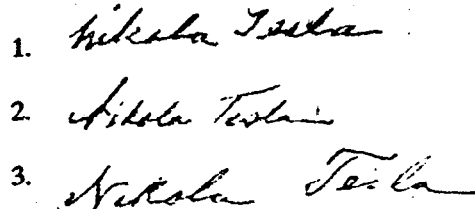 1. Nikola Tesla
2. Nikola Tesla
3. Nikola Tesla